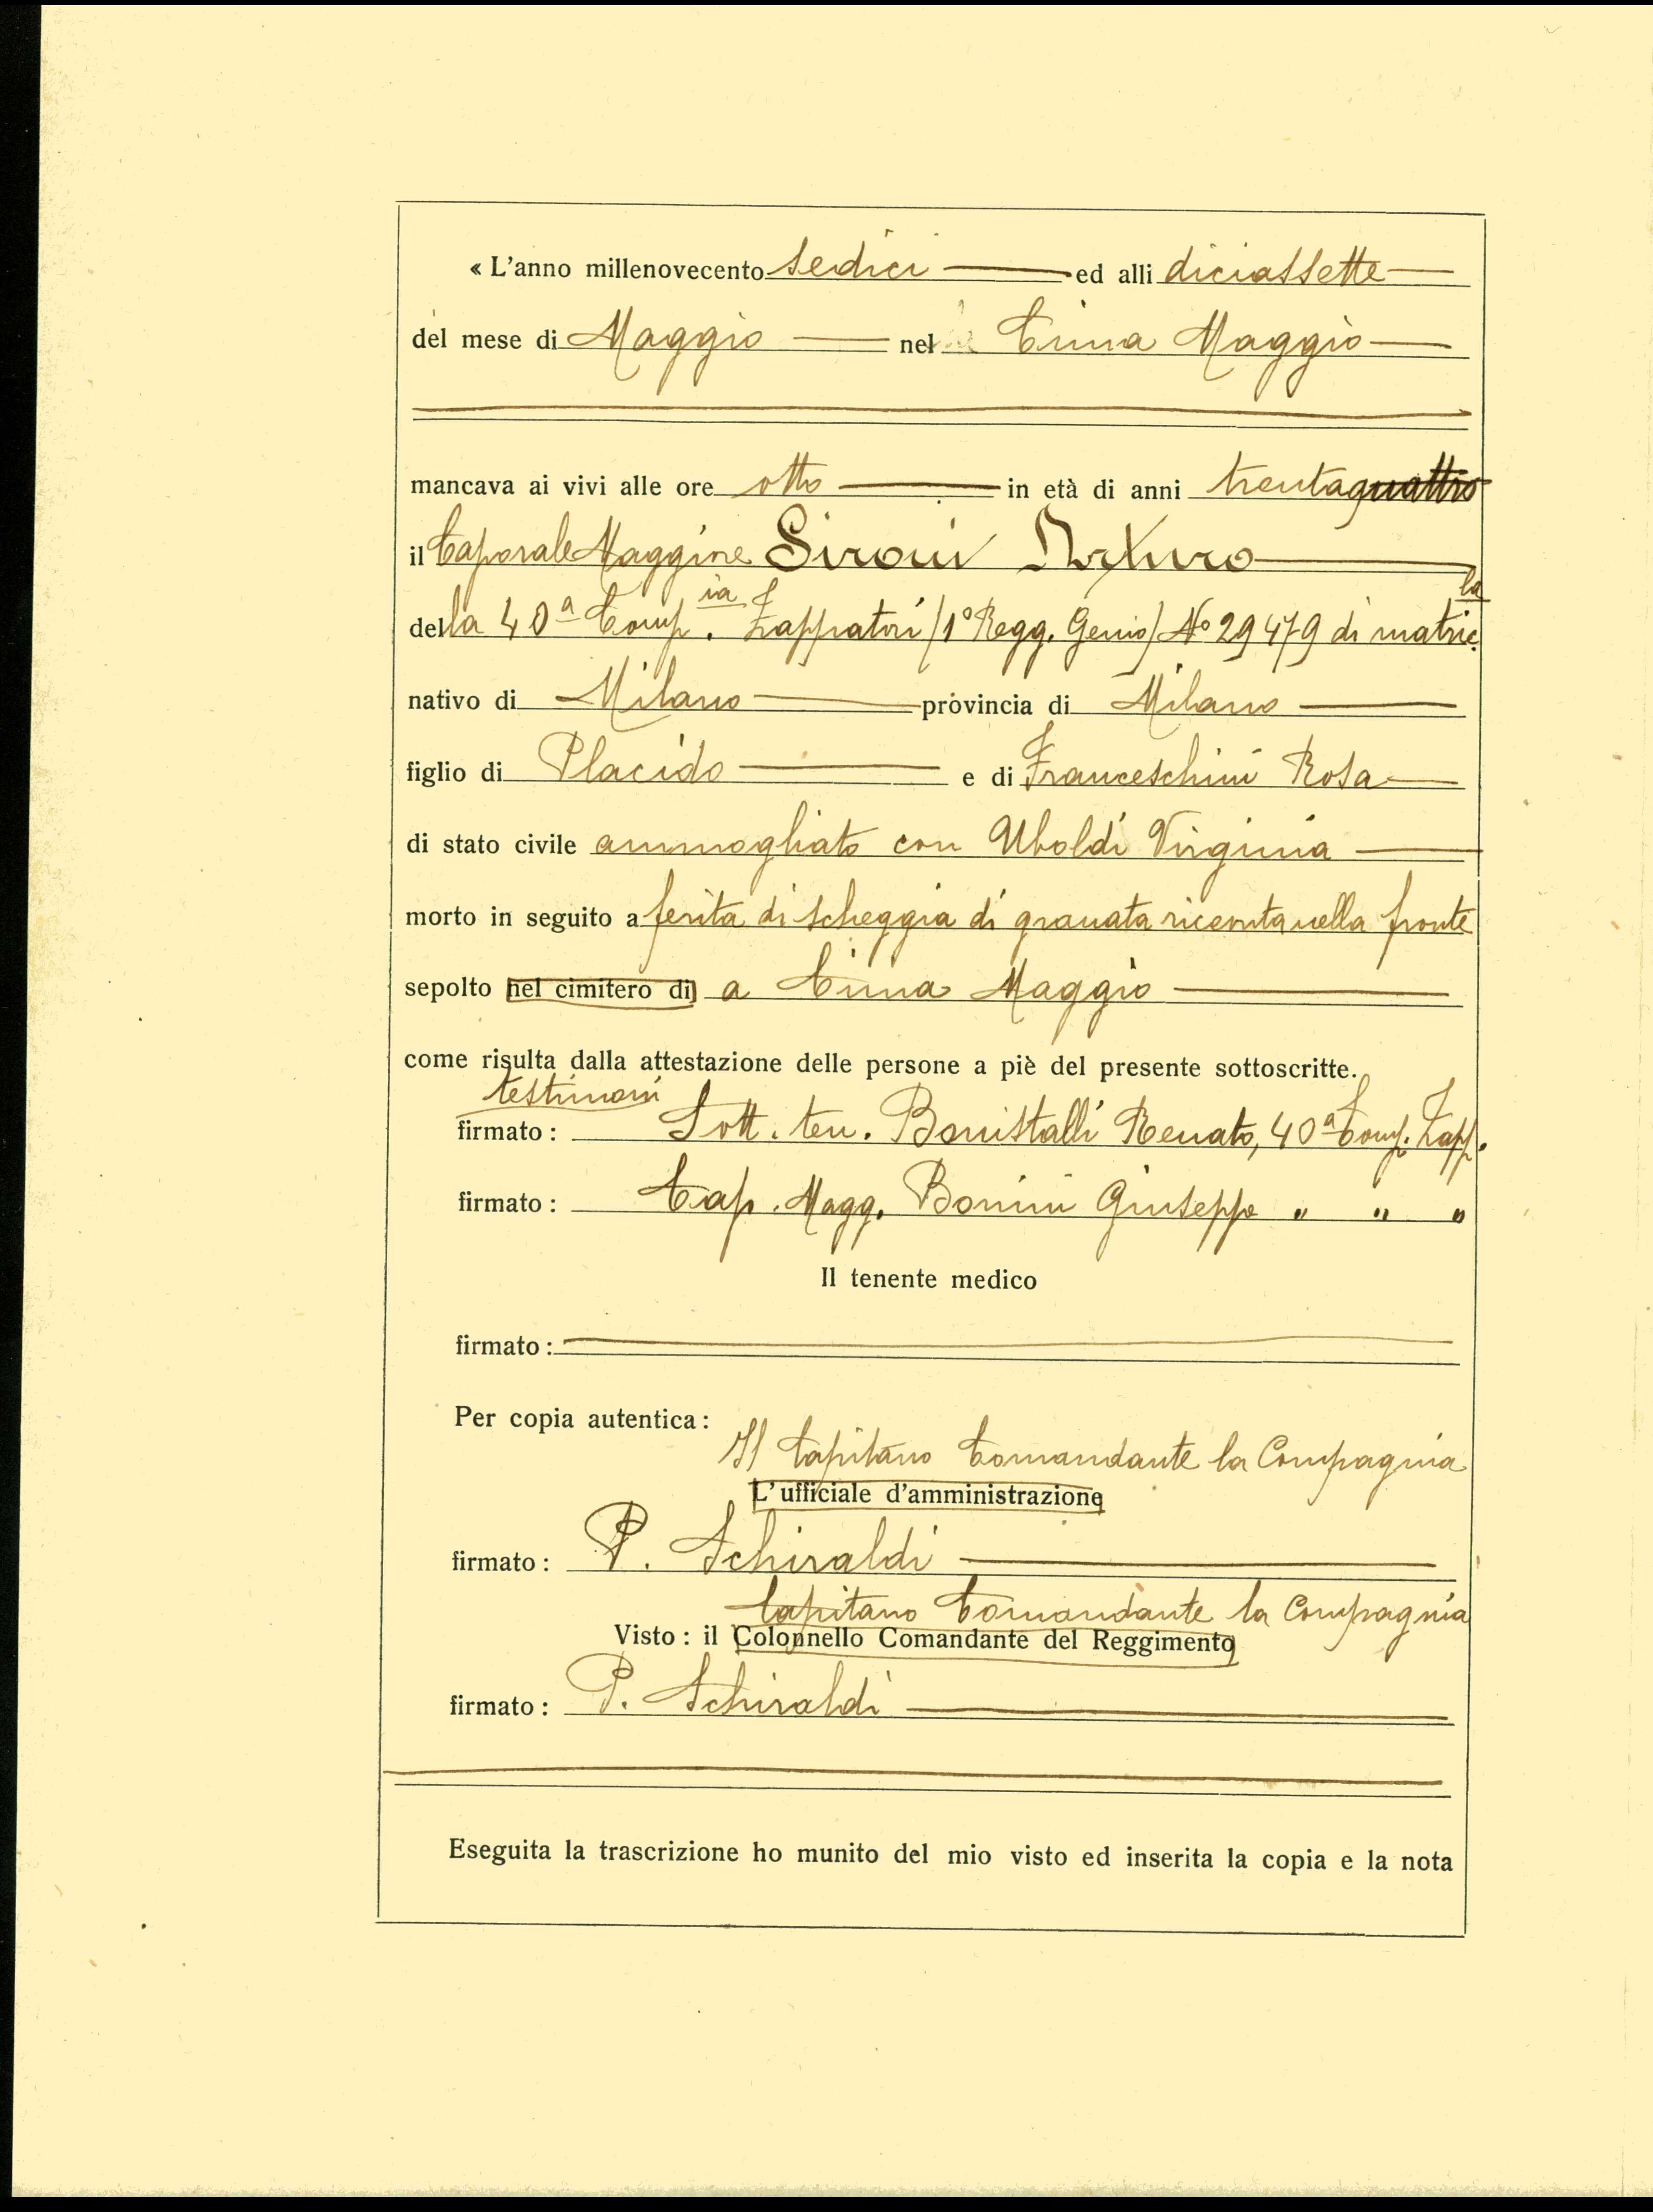 « L'anno millenovecento sedici ed alli diciassette
del mese di Maggio nel Cima Maggio
mancava ai vivi alle ore otto in età di anni trentaquattro
il Caporale Maggiore Sironi Arturo
della 40ª Comp.ia Zappatori (1º Regg. Genio) Nº 29479 di matric.la
nativo di Milano provincia di Milano
figlio di Placido e di Franceschini Rosa
di stato civile ammogliato con Uboldi Virginia
morto in seguito a ferita di scheggia di granata ricevuta nella fronte
sepolto nel cimitero di a Cima Maggio
come risulta dalla attestazione delle persone a piè del presente sottoscritte.
testimoni
firmato : Sott. ten. Bonistalli Renato, 40ª Comp. Zapp.
firmato : Cap. Magg. Bonini Giuseppe " " "
Il tenente medico
firmato :
Per copia autentica :
Il Capitano Comandante la Compagnia
L'ufficiale d'amministrazione
firmato : P. Schiraldi
Capitano Comandante la Compagnia
Visto : il Colonnello Comandante del Reggimento
firmato : P. Schiraldi
Eseguita la trascrizione ho munito del mio visto ed inserita la copia e la nota